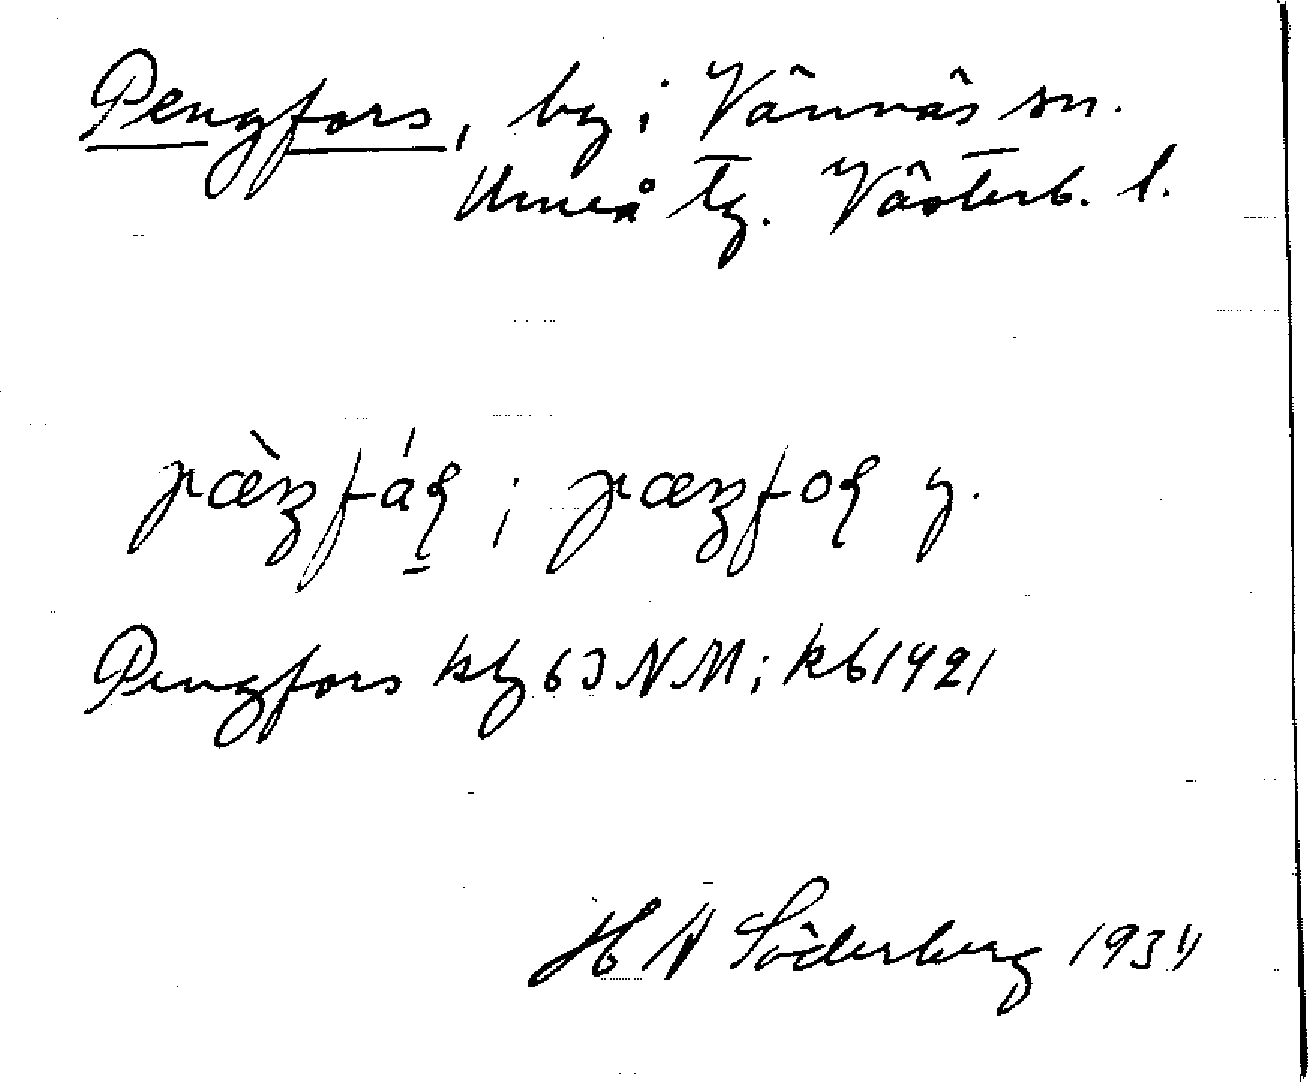 Pengfors, by i Vännäs sn.
Umeå tg. Västerb. l.
pæ̀ŋfáʂ ; pæŋfoʂ y.
Pengfors kby 63 NM; kb 1921
H A Söderberg 1934